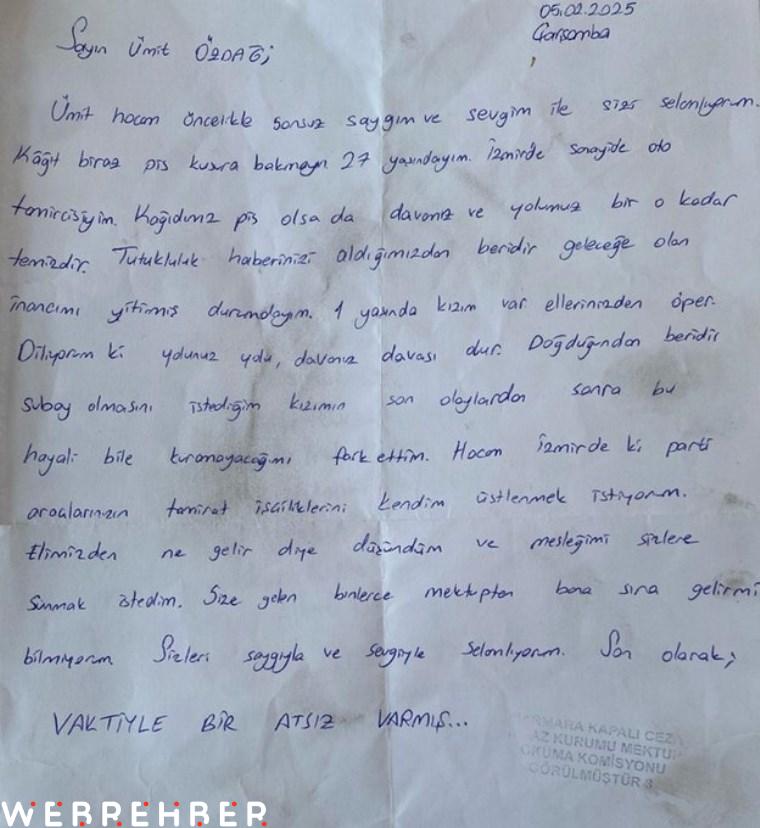 05.02.2025
Çarşamba
Sayın Ümit ÖZDAĞ;
Ümit hocam öncelikle sonsuz saygım ve sevgim ile sizi selamlıyorum.
Kâğıt biraz pis kusura bakmayın 27 yaşındayım. İzmirde sanayide oto
tamircisiyim. Kağıdımız pis olsa da davamız ve yolumuz bir o kadar
temizdir. Tutukluluk haberinizi aldığımızdan beridir geleceğe olan
inancımı yitirmiş durumdayım. 1 yaşında kızım var ellerinizden öper.
Diliyorum ki yolunuz yolu, davanız davası dur. Doğduğundan beridir
subay olmasını istediğim kızımın son olaylardan sonra bu
hayali bile kuramayacağımı fark ettim. Hocam İzmirde ki parti
araçlarınızın tamirat işçiliklerini kendim üstlenmek istiyorum.
Elimizden ne gelir diye düşündüm ve mesleğimi sizlere
sunmak istedim. Size gelen binlerce mektuptan bana sıra gelirmi
bilmiyorum. Sizleri saygıyla ve sevgiyle selamlıyorum. Son olarak;
VAKTİYLE BİR ATSIZ VARMIŞ...
MARMARA KAPALI CEZA
AZ KURUMU MEKTUP
OKUMA KOMİSYONU
GÖRÜLMÜŞTÜR 3
WEBREHBER